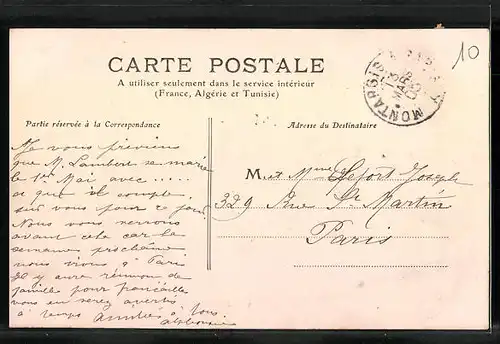 CARTE POSTALE
A utiliser seulement dans le service intérieur
(France, Algérie et Tunisie)
MONTARGIS
MARS
10
Partie réservée à la Correspondance
Adresse du Destinataire
Je vous préviens
que M. Lambert se marie
le 1er Mai avec .....
ce que il compte
sur vous pour ce jour
Nous vous verrons
avant cela car la
semaine prochaine
nous irons à Paris
Il y aura réunion de
famille pour fiançailles
vous en serez avertis
à temps amitiés à tous
M. et Mme Lefort Joseph
329 Rue St Martin
Paris